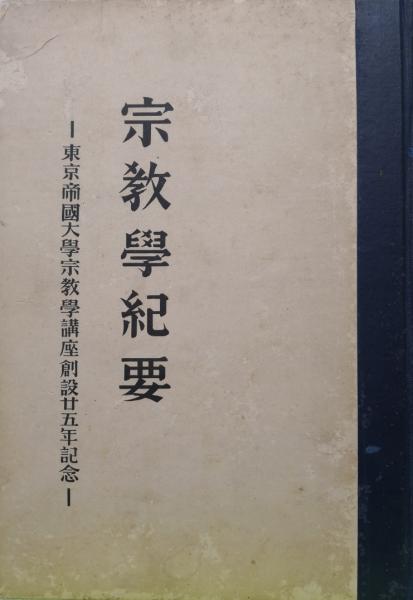 宗教學紀要
―東京帝國大學宗教學講座創設廿五年記念―